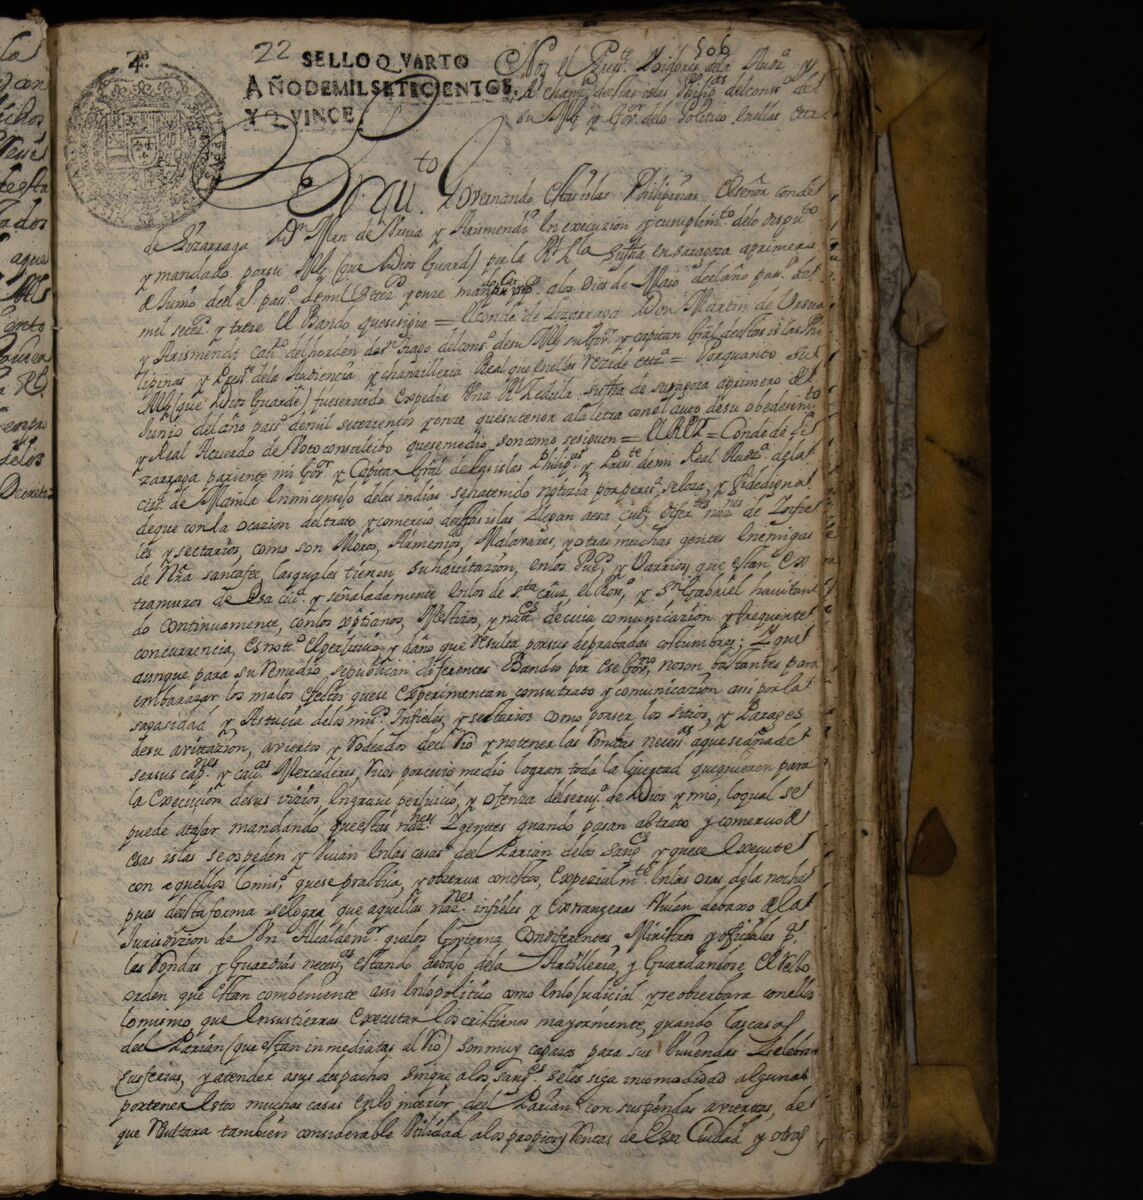 22
506
4º
SELLO QVARTO
AÑO DE MIL SETECIENTOS,
Y QVINCE,
Nos el Presᵗᵉ Yoidores dela Audᵃ y
R. chanzⁱ destas islas Philipⁿᵃˢ del conso del
su Mg y Govʳ delo Politico Enellas ettᵃ.
Porquᵗᵒ Governando Estas islas Philipinas Elseñor conde
de Lizarraga Dⁿ Mar de Ursua y Arismendi En execucion y cumplimᵗᵒ delo dispuᵗᵒ
y mandado por su Mg (que Dios Guardᵉ) por la Rˡ Zˡᵃ Suffhᵃ en saragoza a primero
de Junio del aº pasº demil Setezˢ y onze mando Publicᵃʳ alos Dias de Maio del año pasº de
mil setezˢ y treze El Bando quesesigue = El Conde de Lizarraga Don Martin de Ursua
y Arismendi Cavº del horden de sⁿ tiago del cons. desu Mg su Govʳ y capitan Gral destas islas Phi
lipinas y Presᵗᵉ dela Audiencia y chanzilleria Real que Enellas reside ettᵃ = Porquanto su
Mg (que Dios Guarde) fue servido Expedir Una Rˡ Zedula suffhᵃ de saragoza a primero de
Junio del año pasº demil setezientos y onze que su tenor ala letra con el auto desu obedesimᵗᵒ
y Real Acuerdo de Voto consultibo que se medio son como se siguen = El REY = Conde de Li
zarraga pariente mi Govʳ y Capitan Gral de las islas Philipᵃˢ y Presᵗᵉ demi Real Audᵃ dela
ciuᵈ de Manila En mi consejo delas indias se ha tenido notizia por persᵃ zelosa, y fidedigna
de que con la ocazion del trato y comercio de essas islas llegan a esa ciuᵈ diferᵗᵉˢ nazⁿᵉˢ de Infie
les y sectarios, como son Moros, Armenios, Malavares, y otras muchas gentes Enemigas
de Nrã santa fee, las quales tienen su havitazion, en los Puebˢ y Varrios que estan Ex
tramuros de Esa ciuᵈ y señaladamente En los de sᵗᵃ cruz, el Rosº, y sⁿ Gabriel havitan
do continuamente, con los xptianos, Mestizos, y natˡᵉˢ de cuia comunicazion y frequente
concurrencia, es notº El perjuicio y daño que Resulta por sus depravadas costumbres; Y que
aunque para su Remedio, se publican diferentes Bandos por Ese Govⁿᵒ no son bastantes para
embarazar los malos efectos que se Experimentan con su trato y comunicazion assi por la
sagasidad y Astucia delos misᵐᵒˢ Infieles, y sectarios como por ser los sitios, y Parages
de su avitazion, aviertos y Rodeados del Rio y no tener las Rondas necessᵃˢ a que se añade
ser sus capⁿᵉˢ y cavᵒˢ Mercaderes, Ricos por cuio medio logran toda la livertad que quieren para
la Execucion de sus vizios, En grave perjuicio, y ofenza del servº de Dios y mio, lo qual se
puede atajar mandando que estas nazⁿᵉˢ Y gentes quando pasan al trato y comercio de
esas islas se ospeden y vivan En las casas del Parian de los Sangˡᵉˢ y que se Execute
con aquellos lo misᵐº que se practica, y observa con estos, Especialmᵗᵉ En las oras de la noche
pues de esta forma se logra que aquellas nazⁿᵉˢ infieles y Extrangeras Vivan debaxo de la
Jurisdizion de Un Alcalde mʳ que los Govierna Con diferentes Ministros y oficiales pᵃ
las Rondas y Guardias necessᵃˢ Estando debajo dela Artilleria, y Guardandose El vello
orden que Estan combeniente assi En lo politico como En lo Judicial y se observara con ellos
lo mismo que En sus tierras Executan los cristianos mayormente, quando las casas
del Parian (que estan inmediatas al Rio) son muy capazes para sus Viviendas Zelebrar
sus ferias, y atender a sus despachos sin que a los sangˡᵉˢ se les siga incomodidad alguna
por tener Estos muchas casas En lo interior del Parian con sus tiendas aviertas, de
que Resultara tambien considerable Utilidad a los propios y Rentas de Esa Ciudad y otros